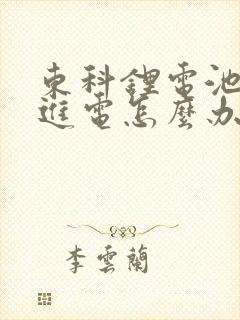 東科鋰電池
進電怎麼办
李雲蘭